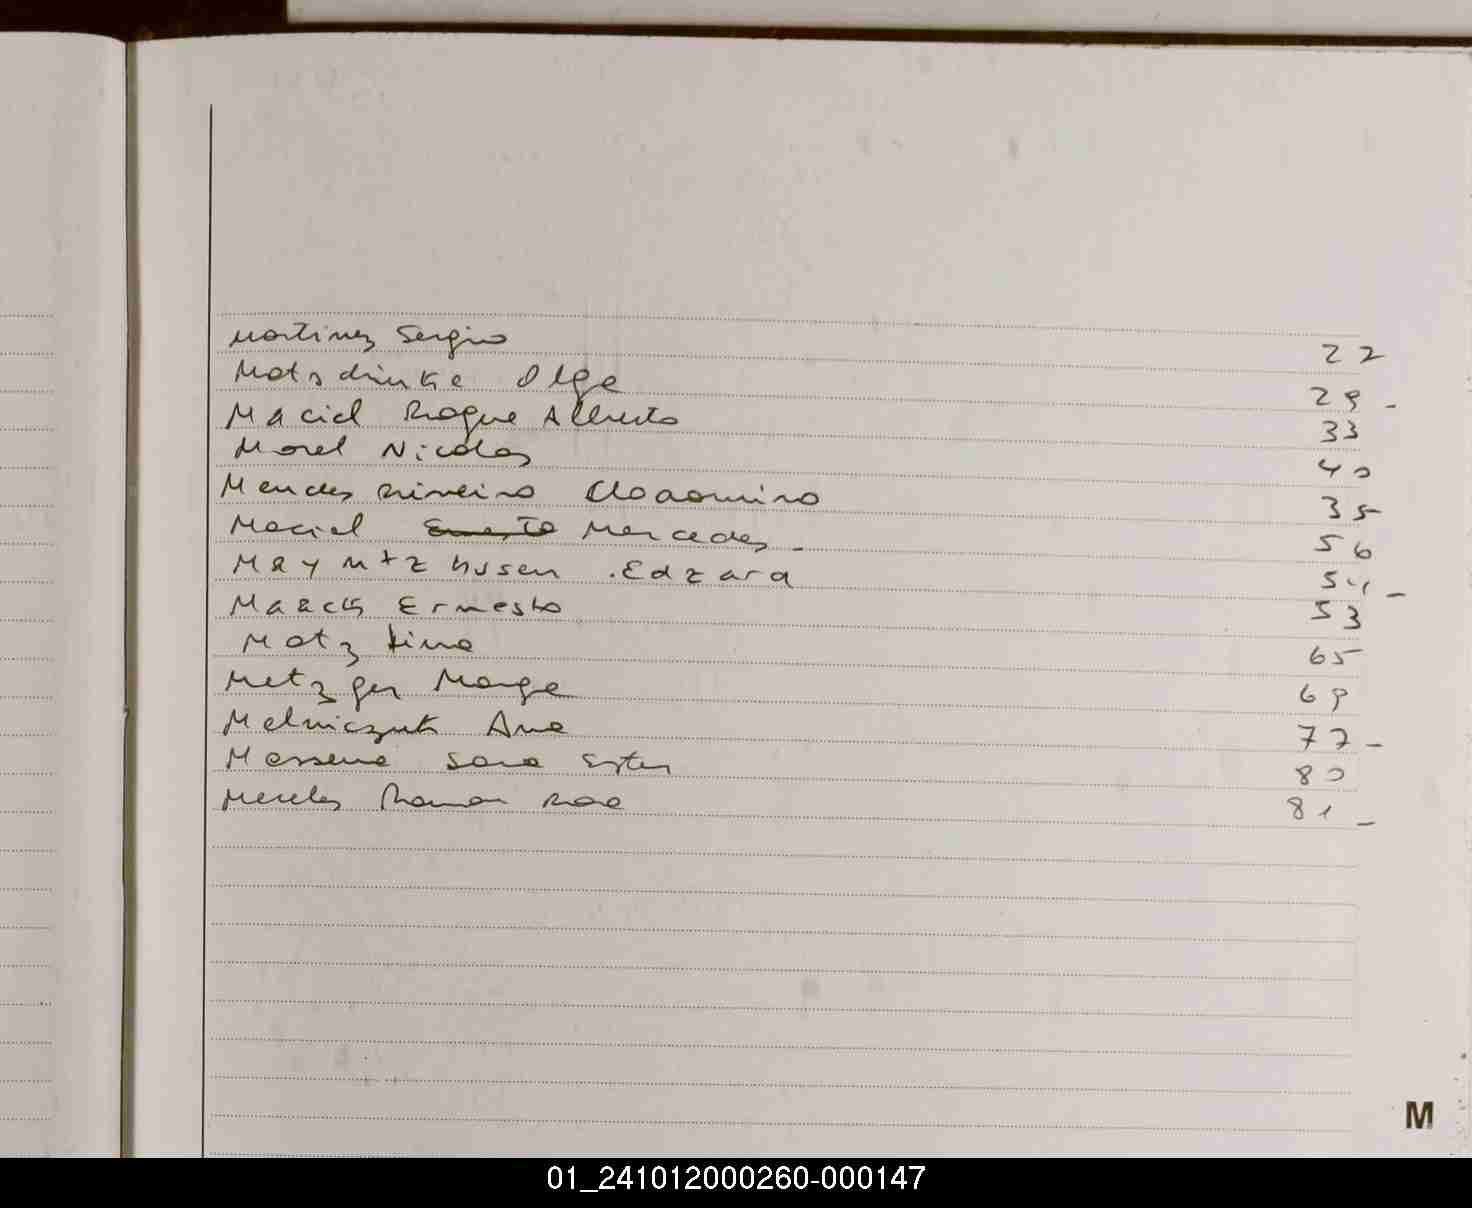 Martinez Sergio 22
Motzdrinke Olga 29 -
Maciel Roque Alberto 33
Morel Nicolas 40
Mendes Ribeiro 35
Maciel Ernesto Mercedes - 56
Edzard 54 -
Ernesto 53
Motz 65
Metzger Marga 69
Melniczuk Ana 77 -
Sara Ester 80
Mereles Ramon 81 -
M
01_241012000260-000147